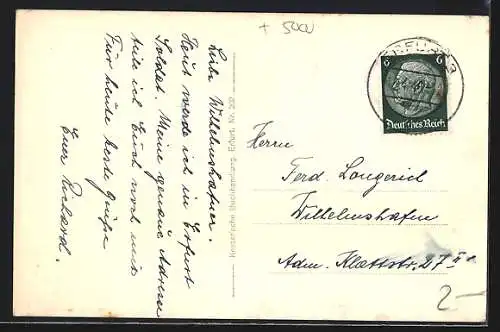 + 5000
Liebe Wilhelmshafner.
Heut werde ich in Erfurt
Soldat. Meine genaue Adresse
teile ich Euch noch mit.
Für heute beste Grüße
Euer Richard.
Keysersche Buchhandlung, Erfurt. Nr. 202
ERFURT
6 6
Deutsches Reich
Herrn
Ferd. Longerich
Wilhelmshafen
Adm. Klattstr. 27 II
2-